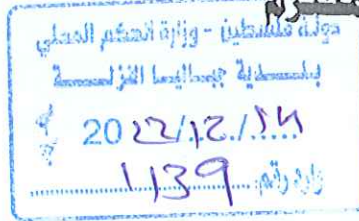 دولة فلسطين - وزارة الحكم المحلي
بلدية جباليا النزلة
2022/12/
وارد رقم: 1139